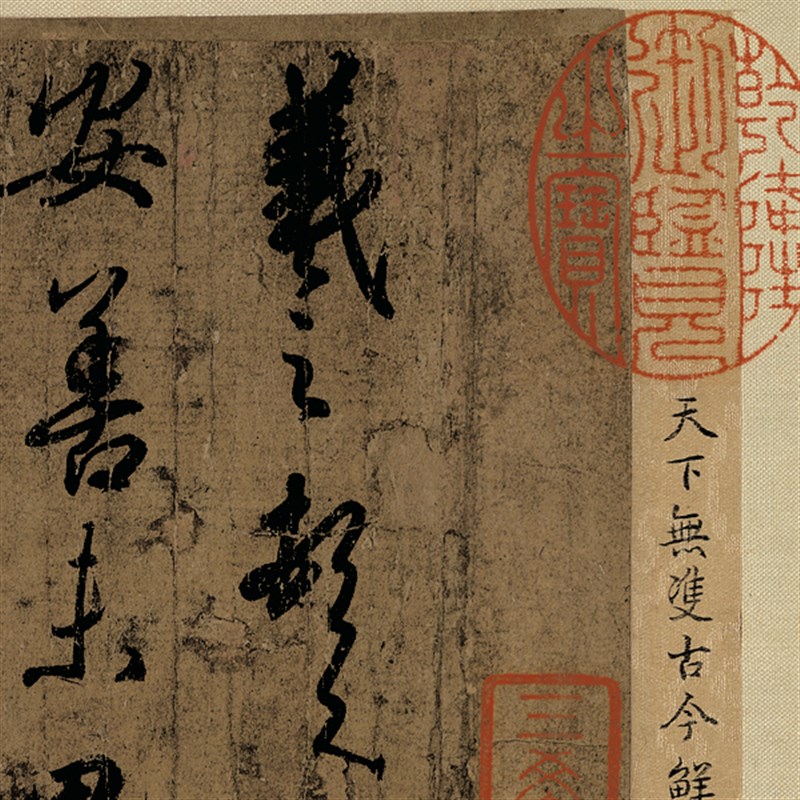 乾隆
御覽
之寶
天下無雙古今鮮
三希
羲之頓首
安善未